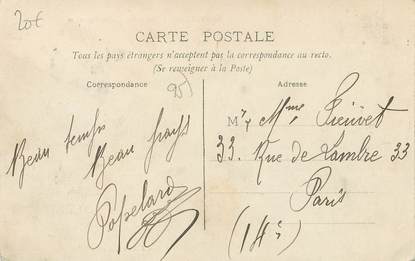 20€
CARTE POSTALE
Tous les pays étrangers n'acceptent pas la correspondance au recto.
(Se renseigner à la Poste)
Correspondance
Adresse
Beau temps
Beau pays
Popelard
M r et Mme
33. Rue de Lambre 33
Paris
(14e)